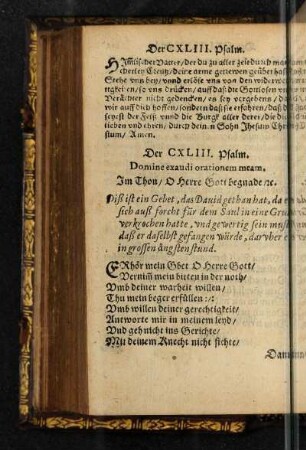 Der CXLIII. Psalm.
HImlischer Vatter, der du zu aller zeit durch man
cherley Creutz, deine arme getrewen geübet hast,
Stehe vns bey, vnnd erlöse vns von den widerwert
tigkeiten, so vns drücken, auff daß die Gottlosen vnd
Verächter nicht gedencken, es sey vergebens, daß
wir auff dich hoffen, sondern daß sie erfahren, daß du
seyest der Felß vnnd die Burgk aller deren, die dich
lieben vnd ehren, durch deinen Sohn Jhesum Chri
stum, Amen.
Der CXLIII. Psalm.
Domine exaudi orationem meam.
Im Thon, O Herre Gott begnade ꝛc.
Diß ist ein Gebet, das Dauid gethan hat, da er
sich auß forcht für dem Saul in eine Gruben
verkrochen hatte, vnd gewertig sein muste,
daß er daselbst gefangen würde, darüber er
in grossen ängsten stund.
ERhör mein Gbet O Herre Gott/
Vernim mein bitten in der noth/
Vmb deiner warheit willen/
Thu mein beger erfüllen :/:
Vmb willen deiner gerechtigkeit/
Antworte mir in meinem leyd/
Vnd geh nicht ins Gerichte/
Mit deinem Knecht nicht sichte/